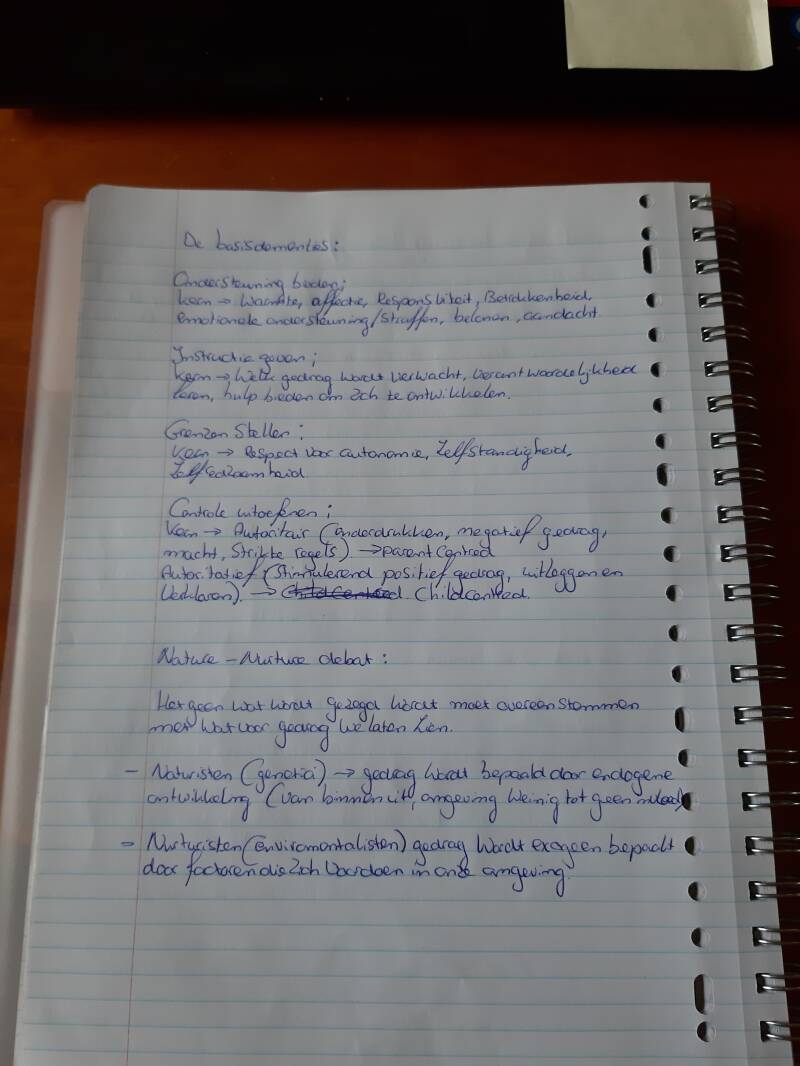 De basisdementies:
Ondersteuning bieden;
Kern → Warmte, affectie, Responsiteit, Betrokkenheid,
emotionele ondersteuning/straffen, belonen, aandacht.
Instructie geven;
Kern → Welk gedrag wordt verwacht, verantwoordelijkheid
leren, hulp bieden om zich te ontwikkelen.
Grenzen Stellen:
Kern → Respect voor autonomie, Zelfstandigheid,
Zelfredzaamheid
Controle uitoefenen;
Kern → Autoritair (onderdrukken, negatief gedrag,
macht, Strikte regels) → parent centred
Autoritatief (Stimulerend positief gedrag, uitleggen en
Verklaren). → Child centred.
Nature - Nurture debat:
Hetgeen wat wordt gezegd wordt moet overeenstemmen
met wat voor gedrag we laten zien.
- Naturisten (genetici) → gedrag wordt bepaald door endogene
ontwikkeling (van binnen uit, omgeving weinig tot geen invloed)
- Nurturisten (enviromentalisten) gedrag wordt exogeen bepaalt
door factoren die zich voordoen in onze omgeving.